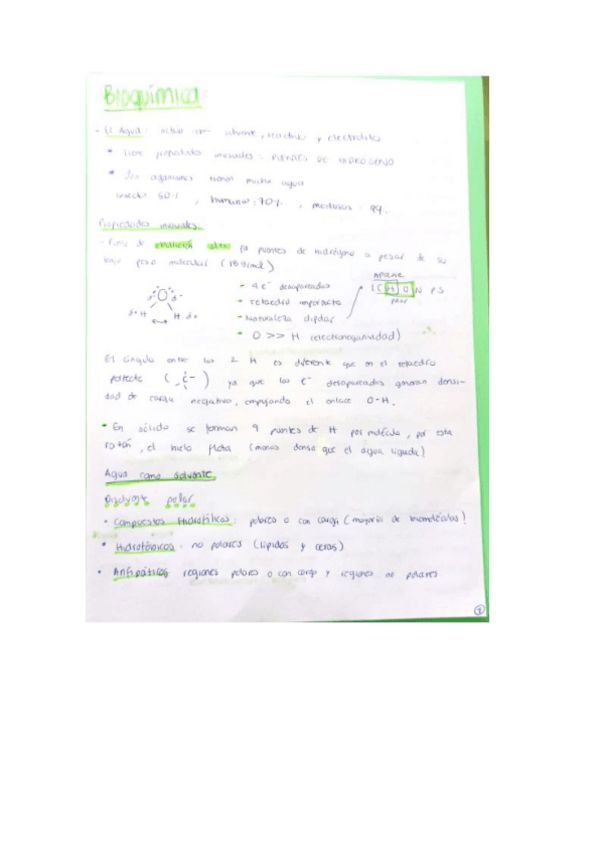 Bioquímica:
- El Agua: actúa como solvente, reactivo y electrolito
* Tiene propiedades inusuales: PUENTES DE HIDRÓGENO
* Los organismos tienen mucha agua
60% , humanos: 70% , medusas: 99.
Propiedades inusuales:
- Punto de por puentes de hidrógeno a pesar de su
bajo peso molecular (18 g/mol)
- 4 e⁻ desapareados
- tetaedro imperfecto
- Naturaleza dipolar
- O >> H (electronegatividad)
C H O N P S
polar
O
δ- δ-
δ+ H H δ+
El ángulo entre los 2 H es diferente que en el tetaedro
perfecto ( -C- ) ya que los e⁻ desapareados generan densi-
dad de carga negativa, empujando el enlace O-H.
- En sólido se forman 4 puentes de H por molécula, por esta
razón, el hielo flota (menos denso que el agua líquida)
Agua como solvente
Disolvente polar
• Compuestos Hidrofílicos: polares o con carga (mayoría de biomoléculas)
* Hidrofóbicos: no polares (lípidos y ceras)
• Anfipáticos regiones polares o con carga y regiones no polares
1